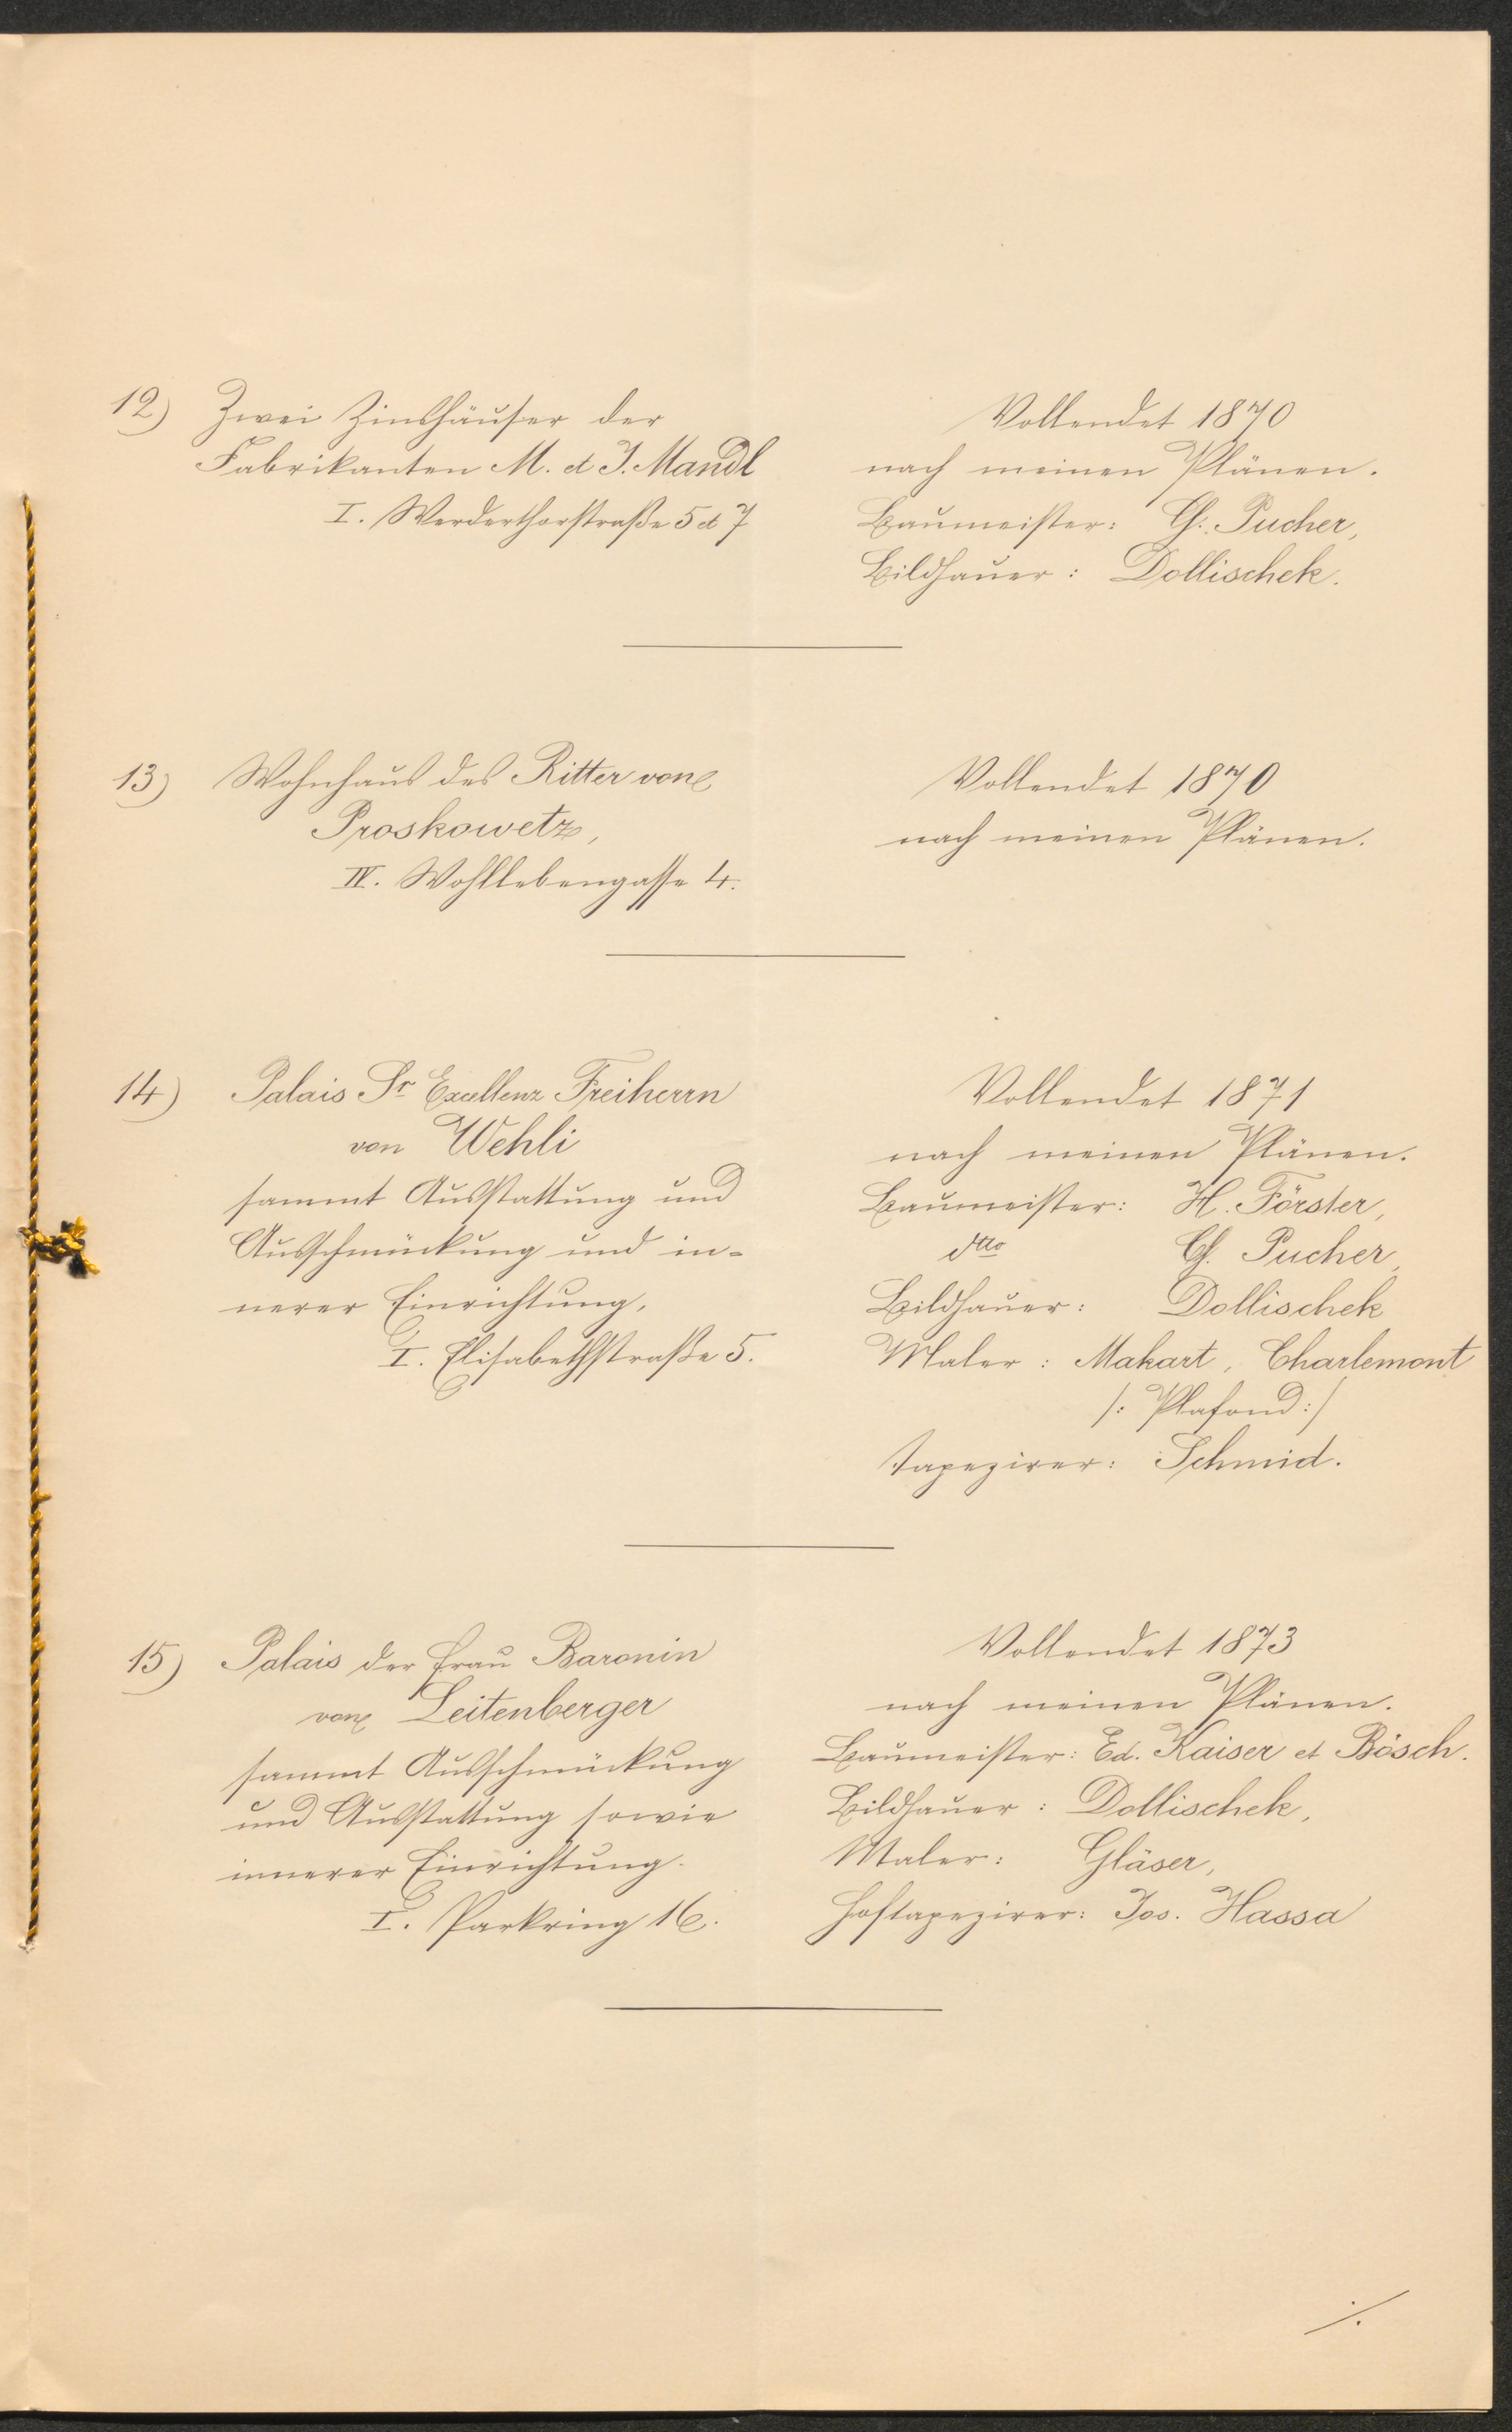 12) Zwei Zinshäuser der
Fabrikanten M. et J. Mandl
I. Werderthorstraße 5 et 7
Vollendet 1870
nach meinen Plänen.
Baumeister: G. Pucher,
Bildhauer: Dollischek.
13) Wohnhaus des Ritter von
Proskowetz,
IV. Wohllebengasse 4.
Vollendet 1870
nach meinen Plänen.
14) Palais Sr Excellenz Freiherrn
von Wehli
sammt Ausstattung und
Ausschmückung und in-
nerer Einrichtung,
I. Elisabethstraße 5.
Vollendet 1871
nach meinen Plänen.
Baumeister: H. Förster,
dtto G. Pucher,
Bildhauer: Dollischek
Maler: Makart, Charlemont
/: Plafond :/
Tapezirer: Schmid.
15) Palais der Frau Baronin
von Leitenberger
sammt Ausschmückung
und Ausstattung sowie
innerer Einrichtung.
I. Parkring 16.
Vollendet 1873
nach meinen Plänen.
Baumeister: Ed. Kaiser et Bösch.
Bildhauer: Dollischek,
Maler: Gläser,
Hoftapezirer: Jos. Hassa
./.